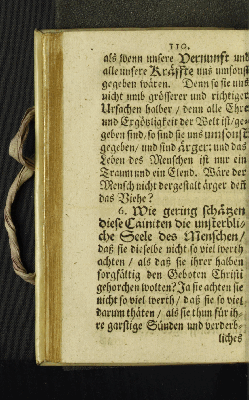 110.
als wenn unsere Vernunft und
alle unsere Kräffte uns umsonst
gegeben wären. Denn so sie uns
nicht umb grösserer und richtiger
Ursachen halber / denn alle Ehre
und Ergötzligkeit der Welt ist / ge-
geben sind, so sind sie uns umsonst
gegeben / und sind ärger; und das
Leben des Menschen ist nur ein
Traum und ein Elend. Wäre der
Mensch nicht dergestalt ärger deñ
das Viehe?
6. Wie gering schätzen
diese Cainiten die unsterbli-
che Seele des Menschen /
daß sie dieselbe nicht so viel werth
achten / als daß sie ihrer halben
sorgfältig den Geboten Christi
gehorchen wolten? Ja sie achten sie
nicht so viel werth / daß sie so viel
darum thäten / als sie thun für ih-
re garstige Sünden und verderb-
liches